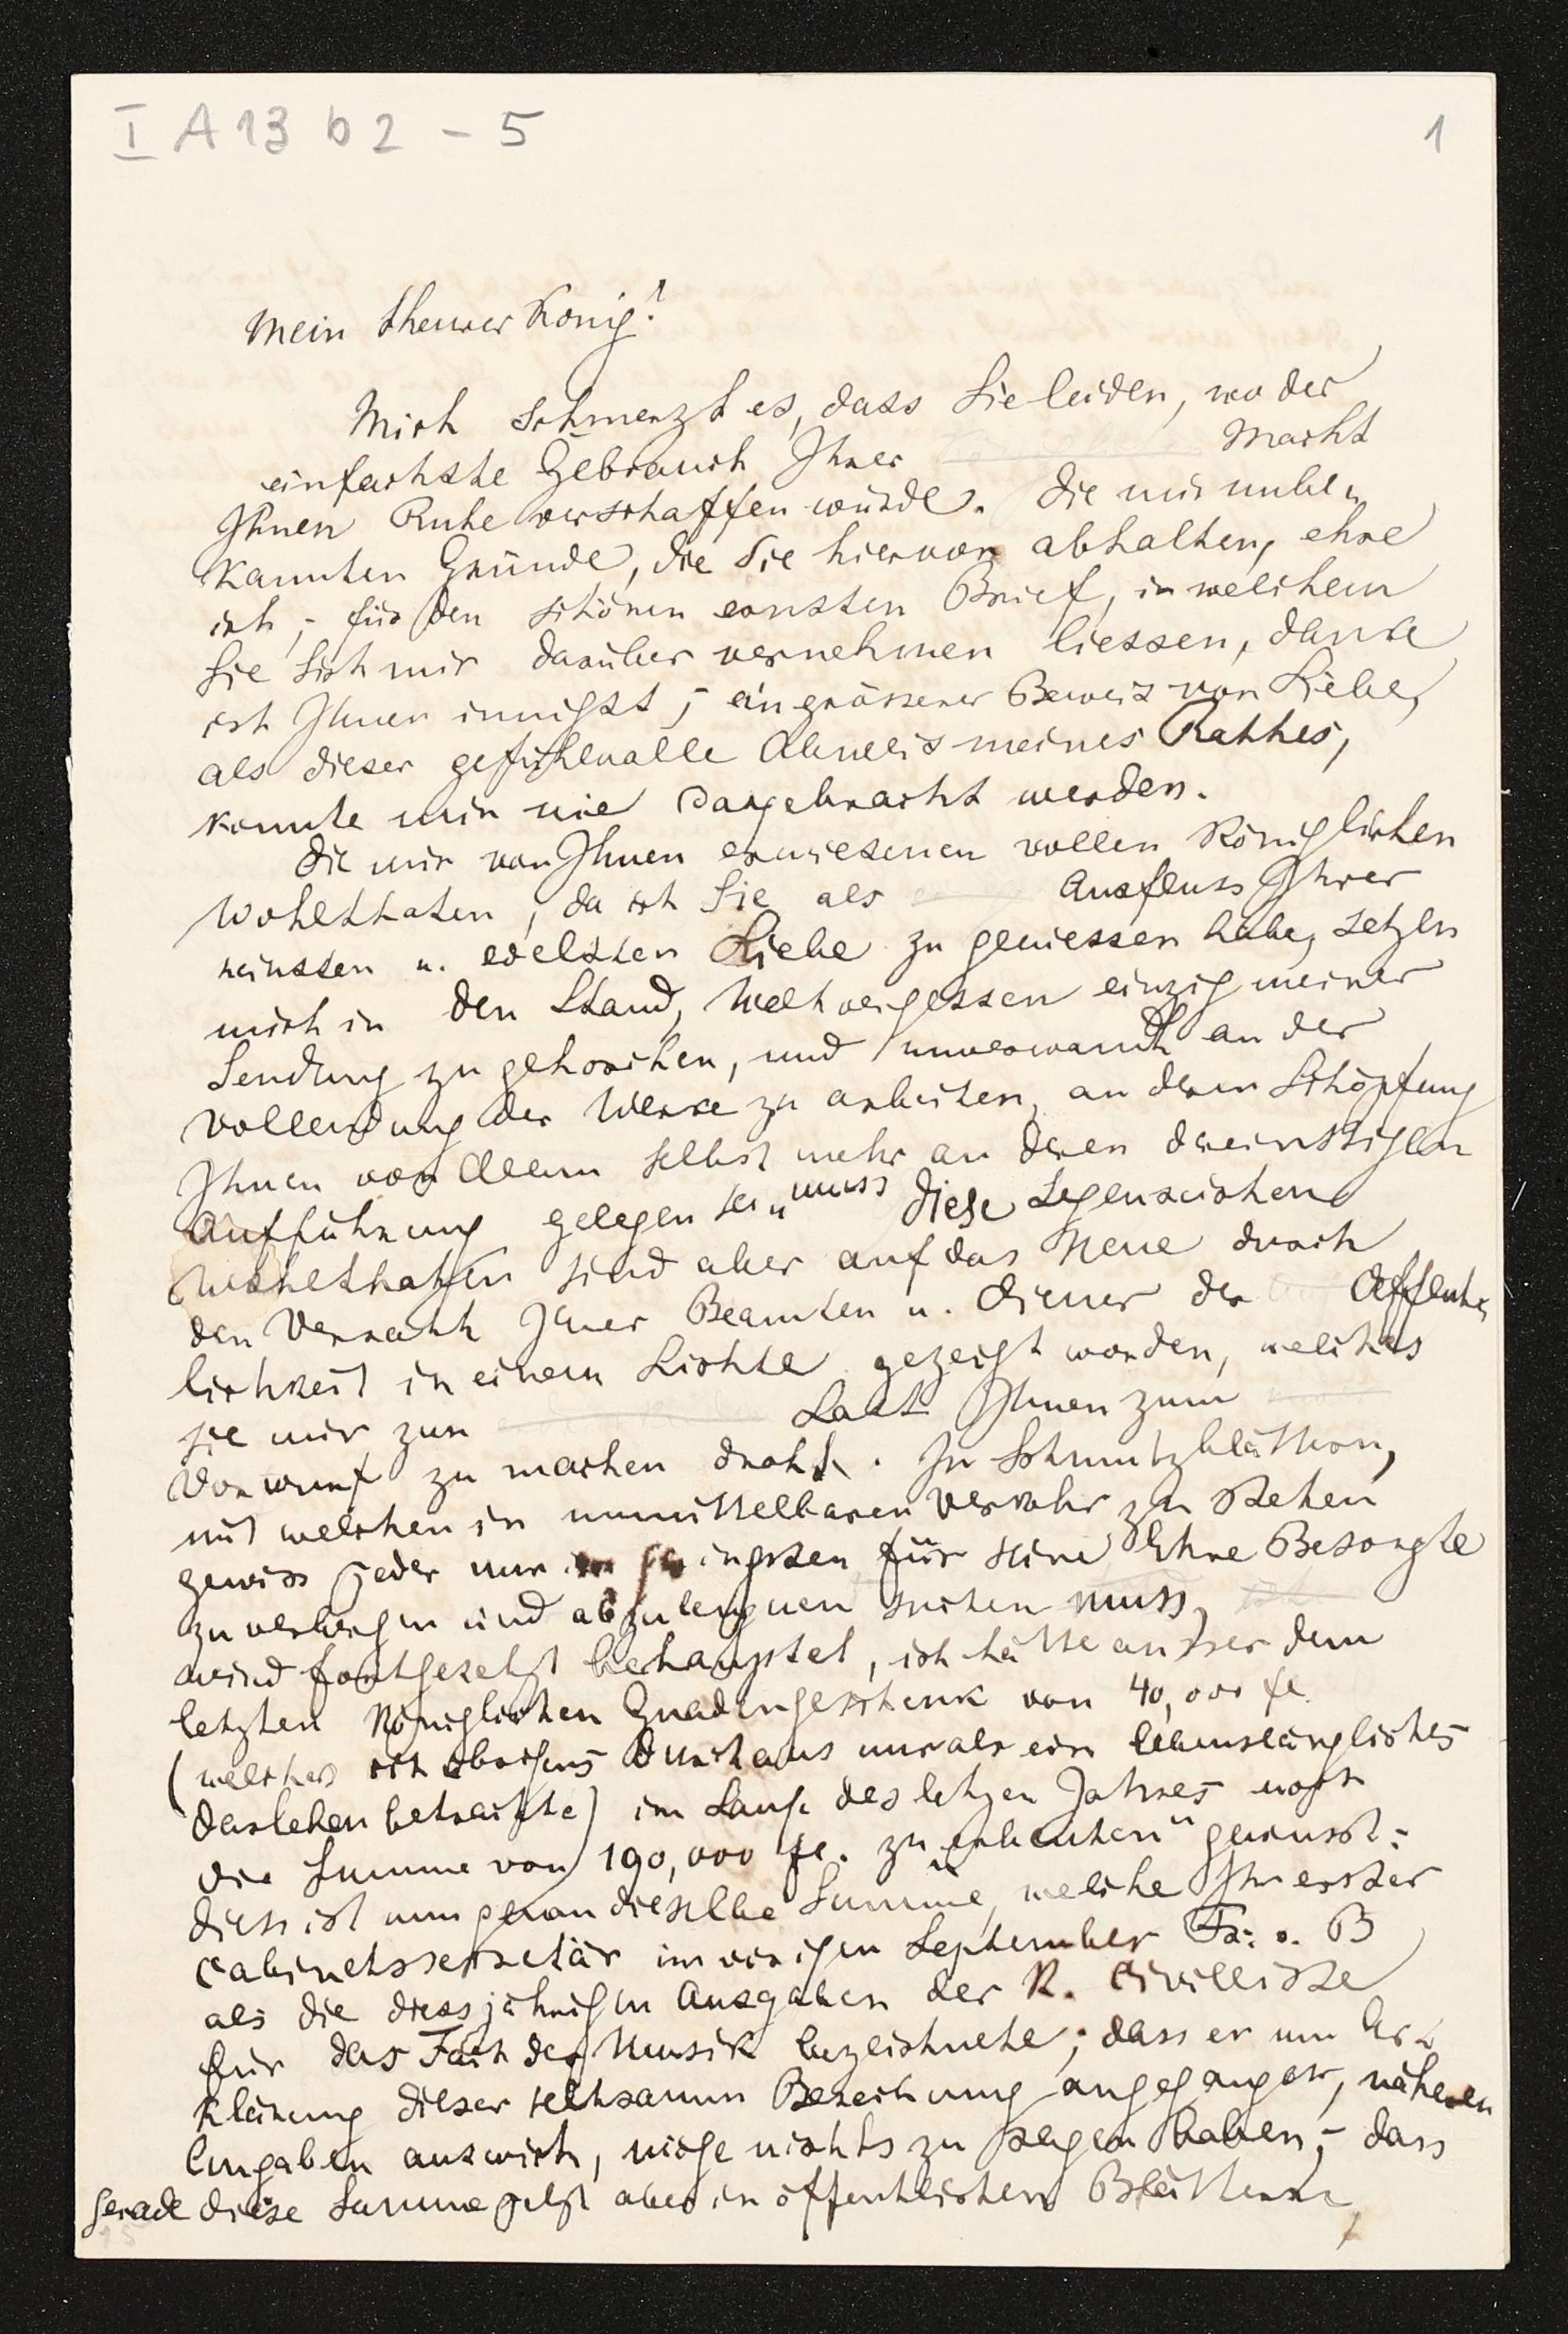 I A 13 b 2 - 5
1
Mein theurer König!
Mich schmerzt es, dass Sie leiden, wo der
einfachste Gebrauch Ihrer Macht
Ihnen Ruhe verschaffen würde. Die mir unbe-
kannten Gründe, die Sie hiervon abhalten, ehre
ich; für den schönen ernsten Brief, in welchem
Sie Sich mir darüber vernehmen liessen, danke
ich Ihnen innigst; ein grösserer Beweis von Liebe,
als dieser gefühlvolle Abweis meines Rathes,
konnte mir nie dargebracht werden.
Die mir von Ihnen erwiesenen vollen Königlichen
Wohlthaten, da ich Sie als Ausfluss Ihrer
reinsten u. edelsten Liebe zu geniessen habe, setzen
mich in den Stand, Weltvergessen einzig meiner
Sendung zu gehorchen, und unverwandt an der
Vollendung der Werke zu arbeiten, an deren Schöpfung
Ihnen vor Allem selbst mehr an deren dereinstigen
Aufführung gelegen sein muss Diese Segensreichen
Wohlthaten sind aber auf das Neue durch
den Verrath Ihrer Beamten u. Diener der Oeffent-
lichkeit in einem Lichte gezeigt worden, welches
sie mir zur Last Ihnen zum
Vorwurf zu machen droht. In Schmutzblättern,
mit welchen in unmittelbaren Verkehr zu stehen
gewiss jeder nur im geringsten für seine Ehre Besorgte
zu verbergen und abzuleugnen suchen muss,
wird fortgesetzt behauptet, ich hätte ausser dem
letzten Königlichen Gnadengeschenk von 40,000 fl.
(welches ich übrigens durchaus nur als ein lebenslängliches
Darlehen betrachte) im Laufe des letzen Jahres noch
die Summe von 190,000 fl. zu „erbeuten" gewusst:
diess ist nun genau dieselbe Summe, welche Ihr erster
Cabinetssekretär im vorigen September Fr: v. B
als die diessjährigen Ausgaben der K. Civilliste
für das Fach der Musik bezeichnete; dass er um Er-
klärung dieser seltsamen Bezeichnung angegangen, näheren
Eingaben auswich, möge nichts zu sagen haben; – dass
gerade diese Summe jetzt aber in öffentlichen Blättern